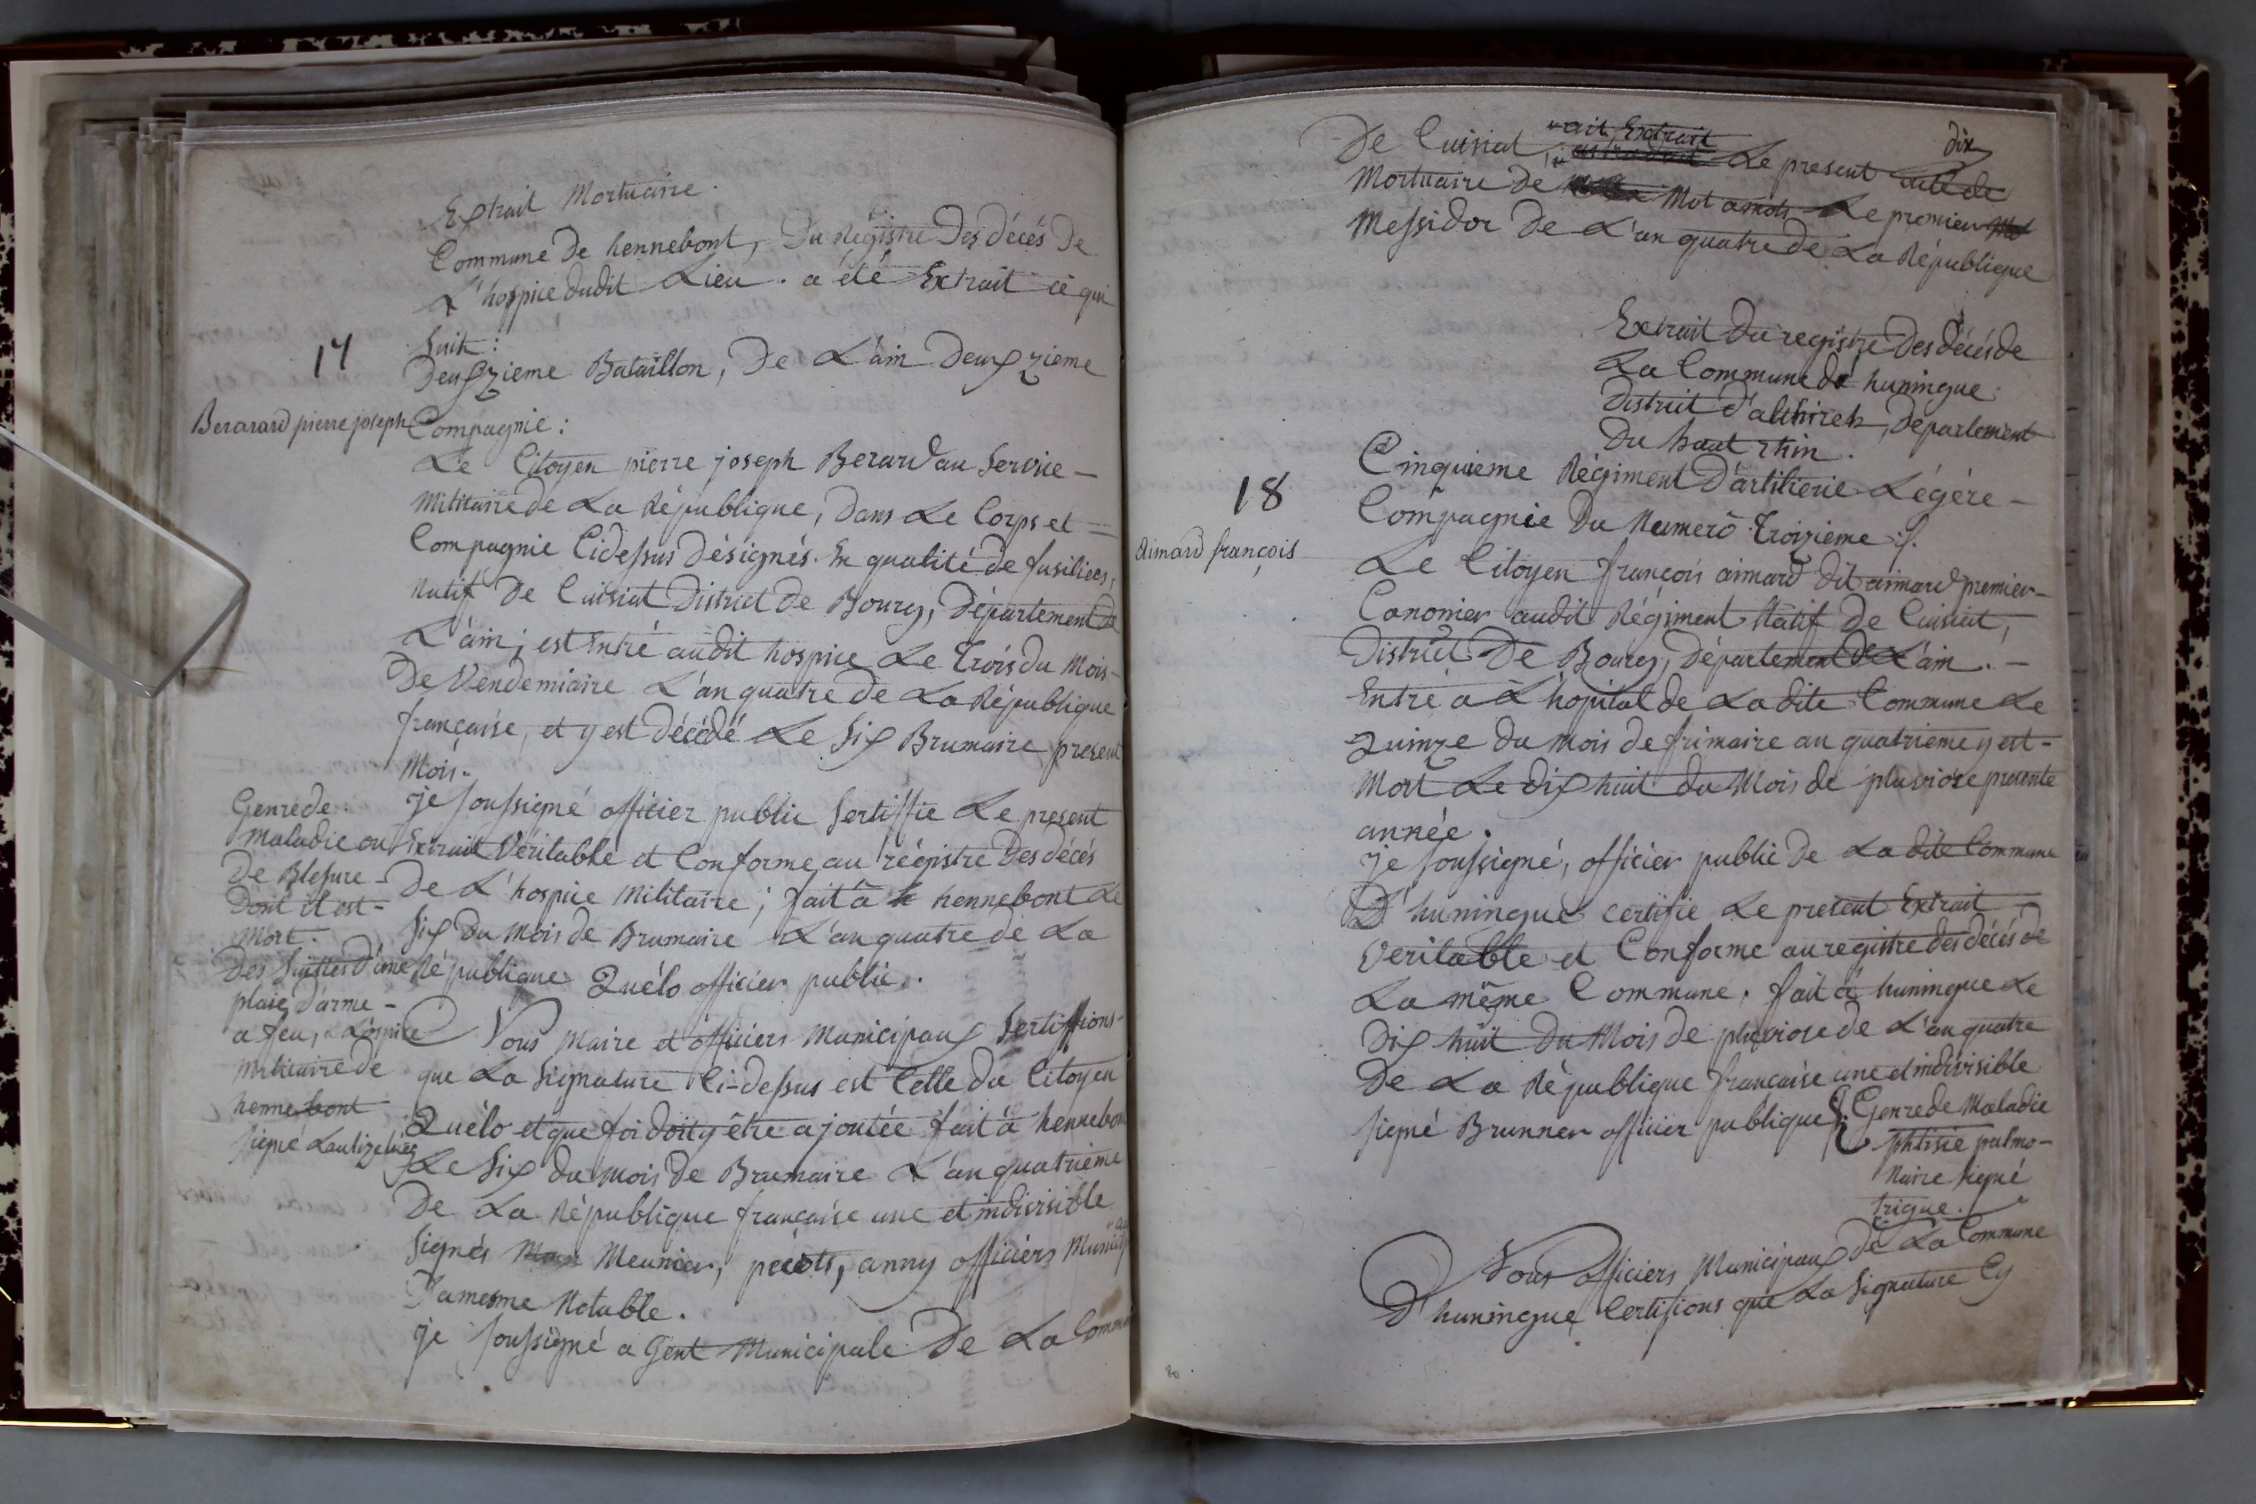 Extrait Mortuaire.
Commune De hennebont, Du Régistre Des décés De
L'hospice dudit Lieu. a été Extrait ce qui
Suit:
17
Deuxzieme Bataillon, De L'ain Deuxzieme
Berarard pierre joseph
Compagnie:
Le Citoyen pierre joseph Berard au Service
Militaire de La République, Dans Le Corps et
Compagnie Cidessus désignés. En qualité de fusiliers,
Natif De Cuisiat District de Bourg, Département de
L'ain; est Entré audit hospice Le Trois du Mois
De Vendemiaire L'an quatre de La République
française, et y est Décédé Le Six Brumaire present
Mois.
je soussigné officier public Sertiffie Le present
Extrait Véritable et Conforme au régistre Des décés
De L'hospice Militaire; fait à hennebont Le
Six Du Mois de Brumaire L'an quatre de La
République Quélo officier public.
Genre de
maladie ou
De Blesure
Dont il est
Mort.
Des Suittes d'une
plaie d'arme
a feu, a L'ospice
Militaire de
hennebont
signé
Nous Maire et officiers Municipaux Sertiffions
que La Signature Ci-dessus est Celle du Citoyen
Quélo et que foi doit y être ajoutée fait à hennebont
Le Six du Mois De Brumaire L'an quatrième
De La République française une et indivisible
Signés Meunier, anny officiers Munici
Notable.
je soussigné a Gent Municipale De La Commune
De Cuisiat Le present
dix
Mortuaire De Le premier
Messidor De L'an quatre de La République
Extrait Du registre Des décés de
La Commune de huningue
District d'althirch, Département
Du haut rhin.
18
Cinquieme Régiment D'artilierie Légére
Compagnie Du Numerō Troizieme
Aimard françois
Le Citoyen françois aimard dit aimard premier
Canonier audit Régiment Natif De Cuisiat,
District De Bourg, Département de L'ain.
Entré a L'hopital de Ladite Commune Le
Quinze du mois de frimaire an quatrieme y est
Mort Le dix huit du Mois de pluviose presente
année.
je soussigné, officier public de La dite Commune
D'huningue certifie Le present Extrait
Veritable et Conforme au registre des décés de
La même Commune. fait à huningue Le
Dix huit Du Mois de pluviose de L'an quatre
De La République française une et indivisible
signé Brunner officier publique
Genre de Maladie
phtisie pulmo-
naire signé
trigue.
Nous officiers Municipaux de La Commune
D'huningue Certifions que La Signature Cy